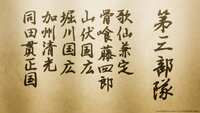 第二部隊
歌仙兼定
骨喰藤四郎
山伏国広
堀川国広
加州清光
同田貫正国